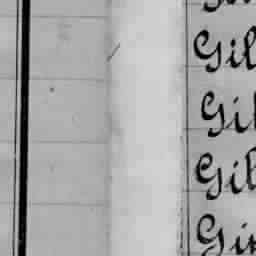 Gil
Gil
Gil
Gin